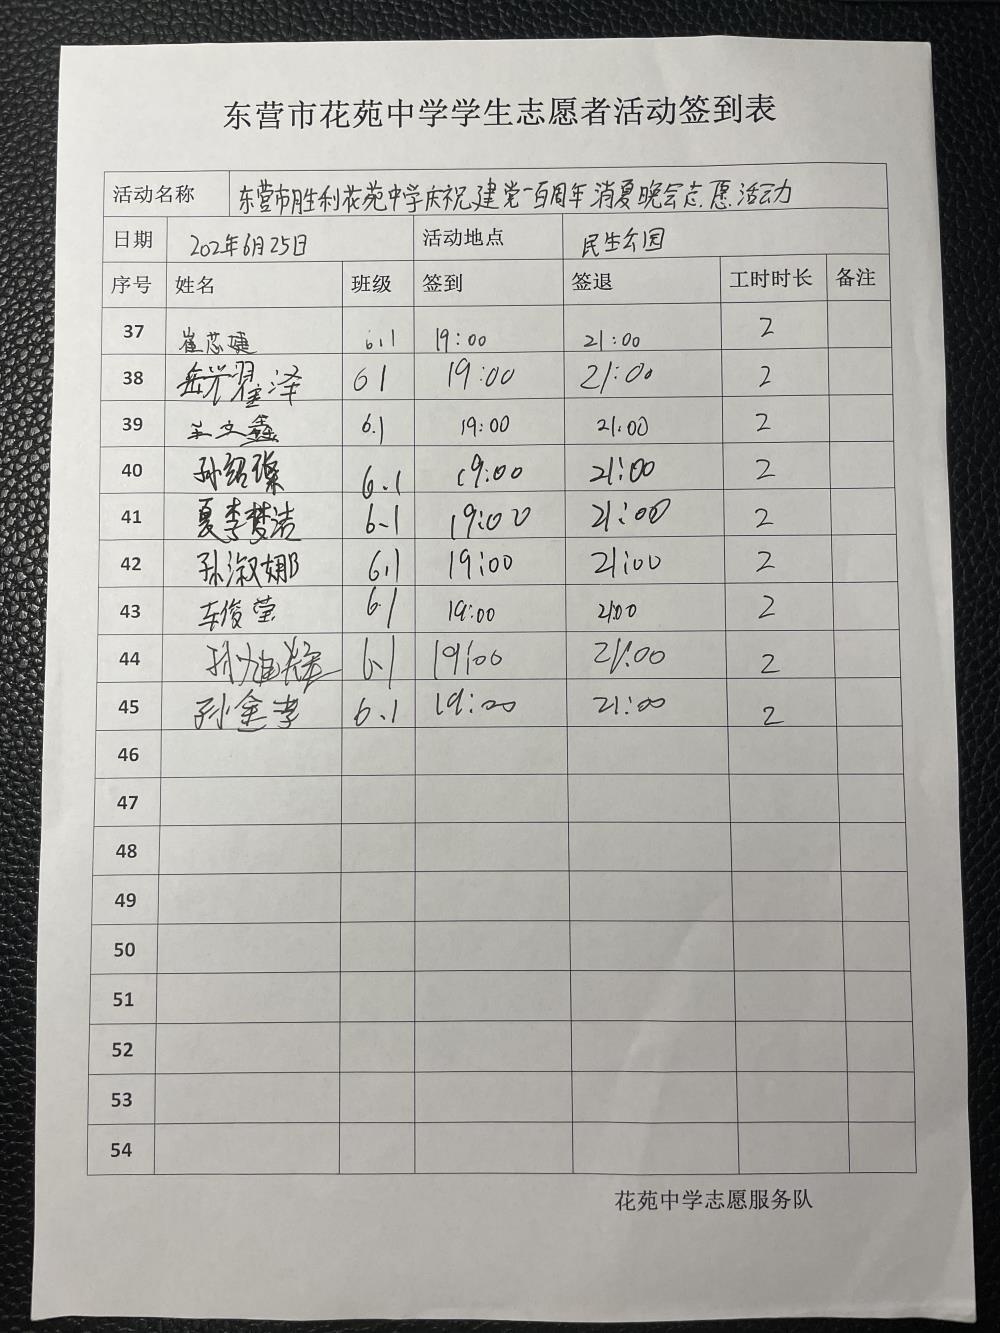 东营市花苑中学学生志愿者活动签到表
活动名称 东营市胜利花苑中学庆祝建党一百周年消夏晚会志愿活动
日期 202年6月25日 活动地点 民生公园
序号 姓名 班级 签到 签退 工时时长 备注
37 崔芯婕 6.1 19:00 21:00 2
38 岳 泽 61 19:00 21:00 2
39 王文鑫 6.1 19:00 21:00 2
40 孙绍璨 6.1 19:00 21:00 2
41 夏李梦洁 6.1 19:00 21:00 2
42 孙淑娜 6.1 19:00 21:00 2
43 车俊莹 6.1 19:00 21:00 2
44 孙 6.1 19:00 21:00 2
45 孙金孝 6.1 19:00 21:00 2
46
47
48
49
50
51
52
53
54
花苑中学志愿服务队